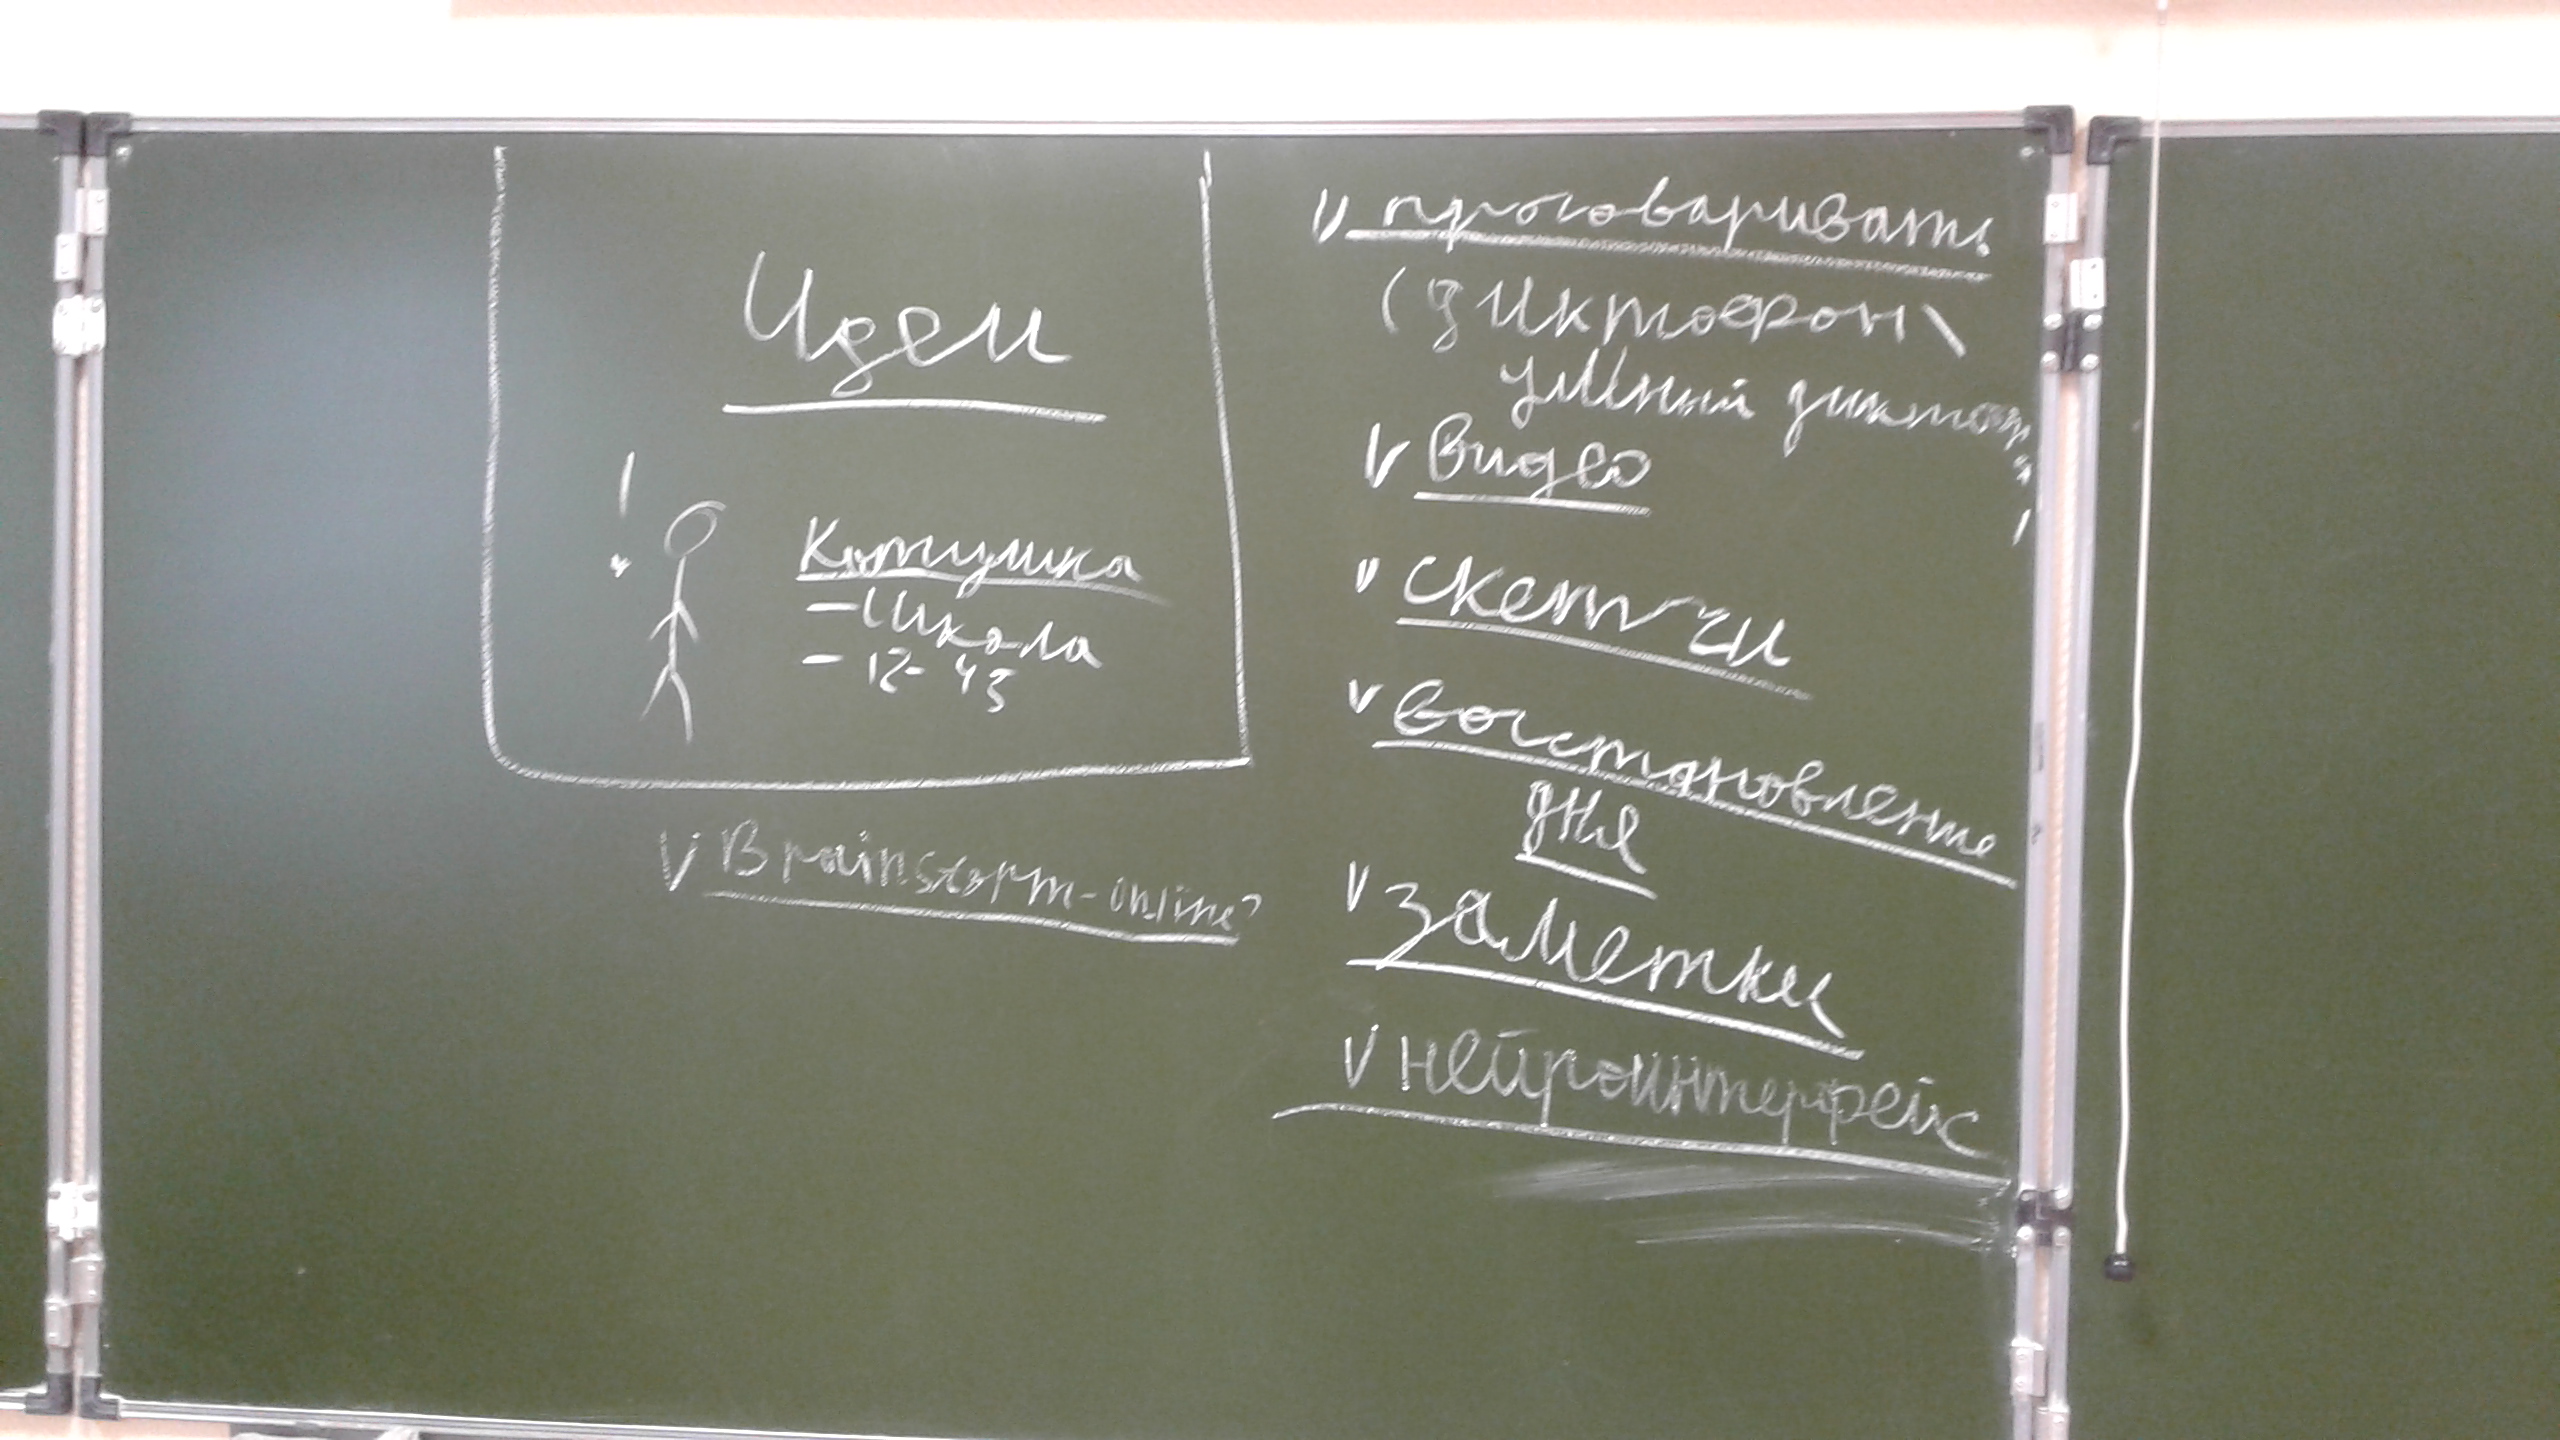 Идеи
!
Катушка
- Школа
- 12-43
V Brainstorm-online?
V проговаривать
(диктофон \
умный диктоф
V видео
V скетчи
V восстановление
дня
V заметки
V нейроинтерфейс